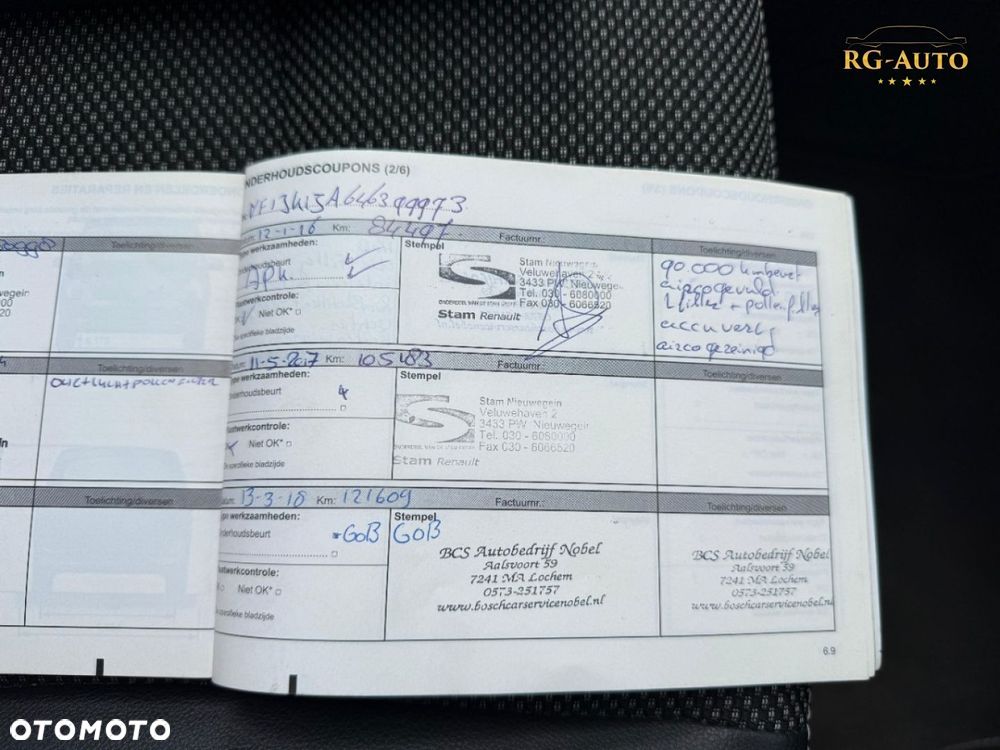 RG-AUTO
NDERHOUDSCOUPONS (2/6)
VF15MI5A646399973
12-1-16 Km: 84497
Factuurnr.:
Toelichting/diversen
werkzaamheden:
derhoudsbeurt
APK
Niet OK*
specifieke bladzijde
Stempel
Stam Nieuwegein
Veluwehaven 2
3433 PW Nieuwegein
Tel. 030 - 6080000
Fax 030 - 6066520
Stam Renault
90.000 km beurt
airco gevuld
+ pollenfilter
accu
airco gereinigd
Toelichting/diversen
11-5-2017 Km: 105483
Factuurnr.:
Toelichting/diversen
pe werkzaamheden:
nderhoudsbeurt
Niet OK*
specifieke bladzijde
Stempel
Stam Nieuwegein
Veluwehaven 2
3433 PW Nieuwegein
Tel. 030 - 6080000
Fax 030 - 6066520
Stam Renault
Toelichting/diversen
13-3-18 Km: 121609
Factuurnr.:
Toelichting/diversen
pe werkzaamheden:
nderhoudsbeurt
GOB
Niet OK*
specifieke bladzijde
Stempel
GOB
BCS Autobedrijf Nobel
Aalsvoort 59
7241 MA Lochem
0573-251757
www.boschcarservicenobel.nl
BCS Autobedrijf Nobel
Aalsvoort 59
7241 MA Lochem
0573-251757
www.boschcarservicenobel.nl
6.9
OTOMOTO